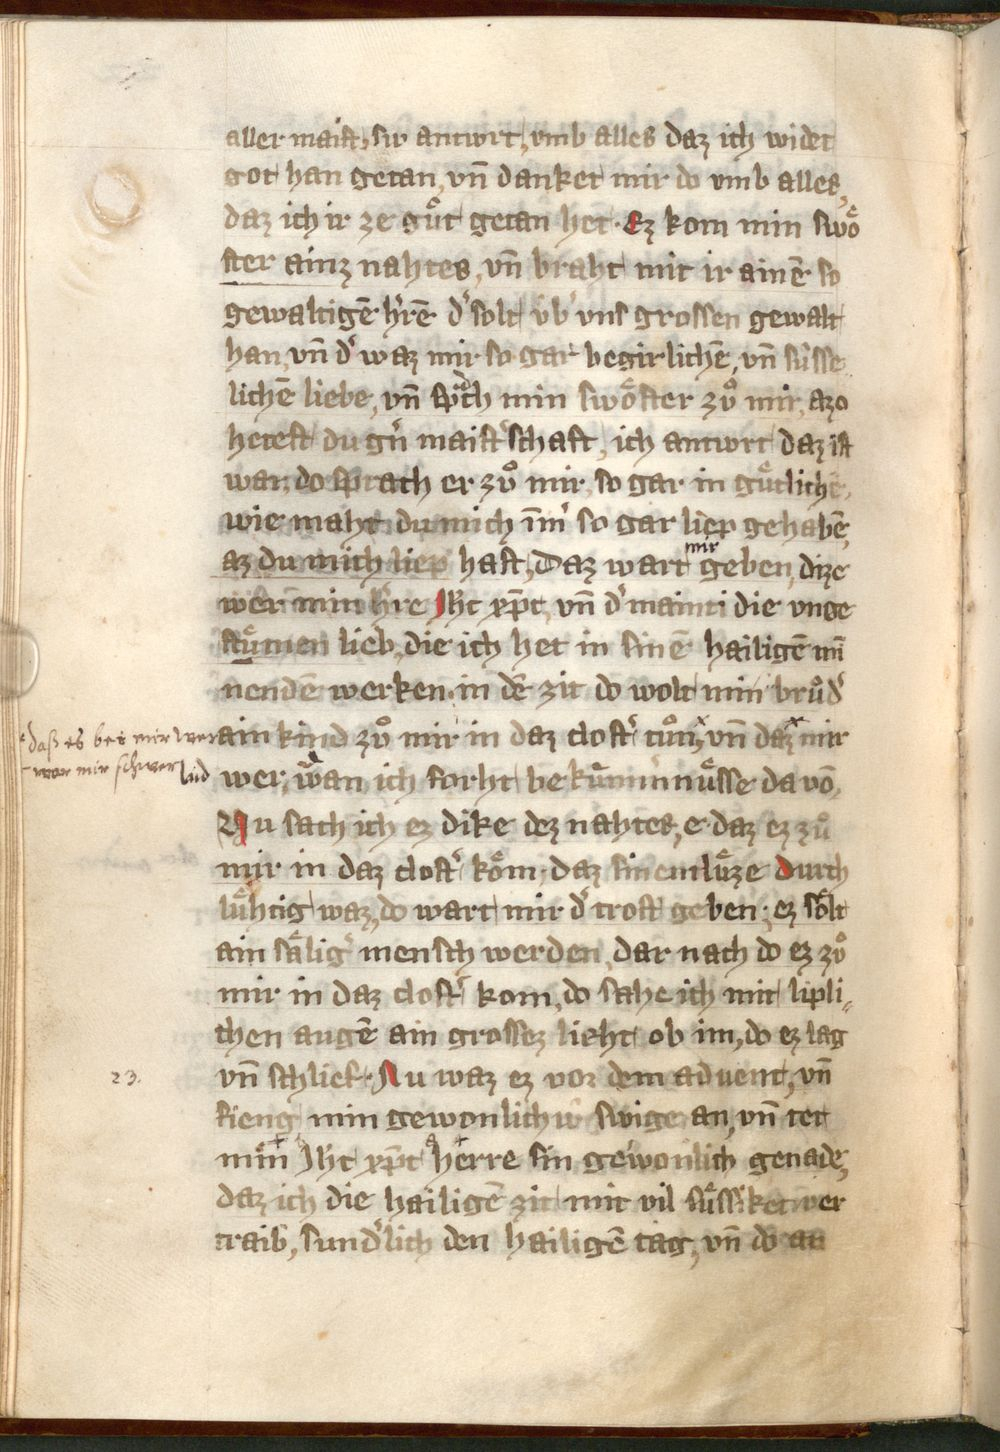 aller maist, siv antwrt, vmb alles daz ich wider
got han getan, vn̄ danket mir do vmb alles,
daz ich ir ze gůt getan het. Ez kom min swö
ster ainz nahtes, vn̄ braht mit ir ainē so
gewaltigē h̓rē d̓ solt v̓b̓ vns grossen gewalt
han, vn̄ d̓ waz mir so gar begirlichē, vn̄ sůsse
lichē liebe, vn̄ sprach min swöster zů mir, azo
hetest du gn̓ maist̓schaft, ich antwrt daz ist
war, do sprath er zů mir so gar in gůtliche,
wie maht du mich im̄ so gar liep gehabē,
az du mich liep hast, Daz wart mir geben, dize
wer min h̓re Jh̄c xp̄c, vn̄ d̓ mainti die vnge
stůmen lieb, die ich het in sinē hailigē mī
nendē werken. in dē zit do wolt min brůd̓
ain kind zů mir in daz clost̓ tůn, vn̄ daz mir
* daß es bei mir wer
– war mir schwer
laid wer, wan ich forht bekům̄nůsse da vō,
Nu sach ich ez dike dez nahtes, e daz ez zů
mir in daz clost̓ köm, daz sin emlůze durch
lühtig waz, do wart mir d̓ trost geben, ez sölt
ain sälig̓ mensch werden, dar nach do ez zů
mir in daz clost̓ kom, do sahe ich mit lipli⸗
chen augē ain grossez lieht ob im, do ez lag
23.
vn̄ schlief. Nu waz ez vor dem advent, vn̄
fieng min gewonlich̓v swige an, vn̄ tet
min Jh̄c xp̄c herre sin gewonlich genade,
daz ich die hailigē zit mit vil sůssiket ver
traib, sund̓lich den hailigē tag, vn̄ do an